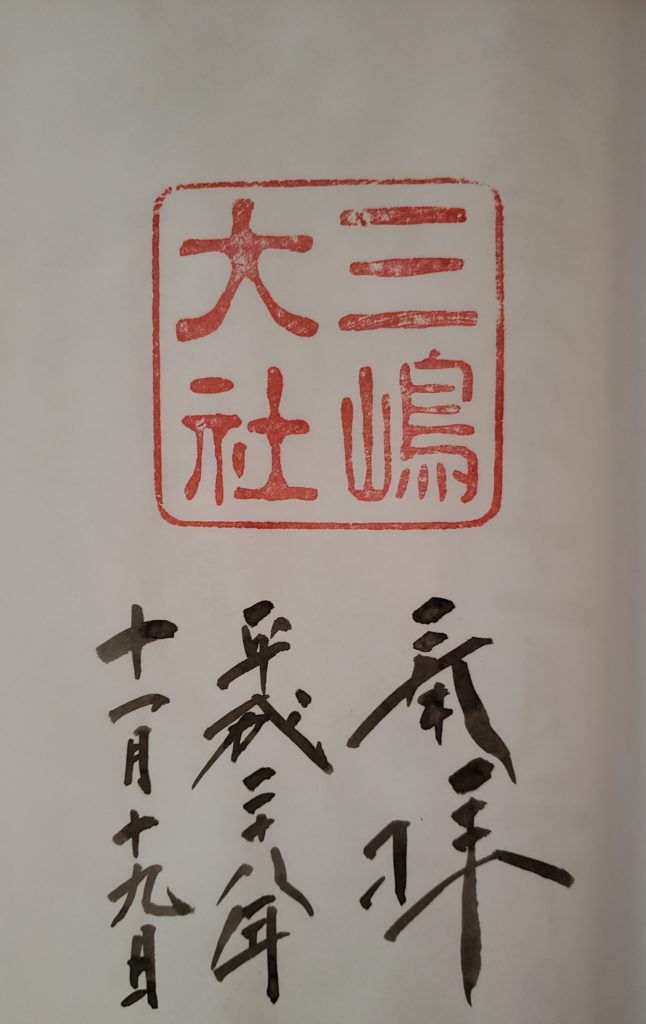 三嶋
大社
奉拝
平成二十八年
十一月十九日